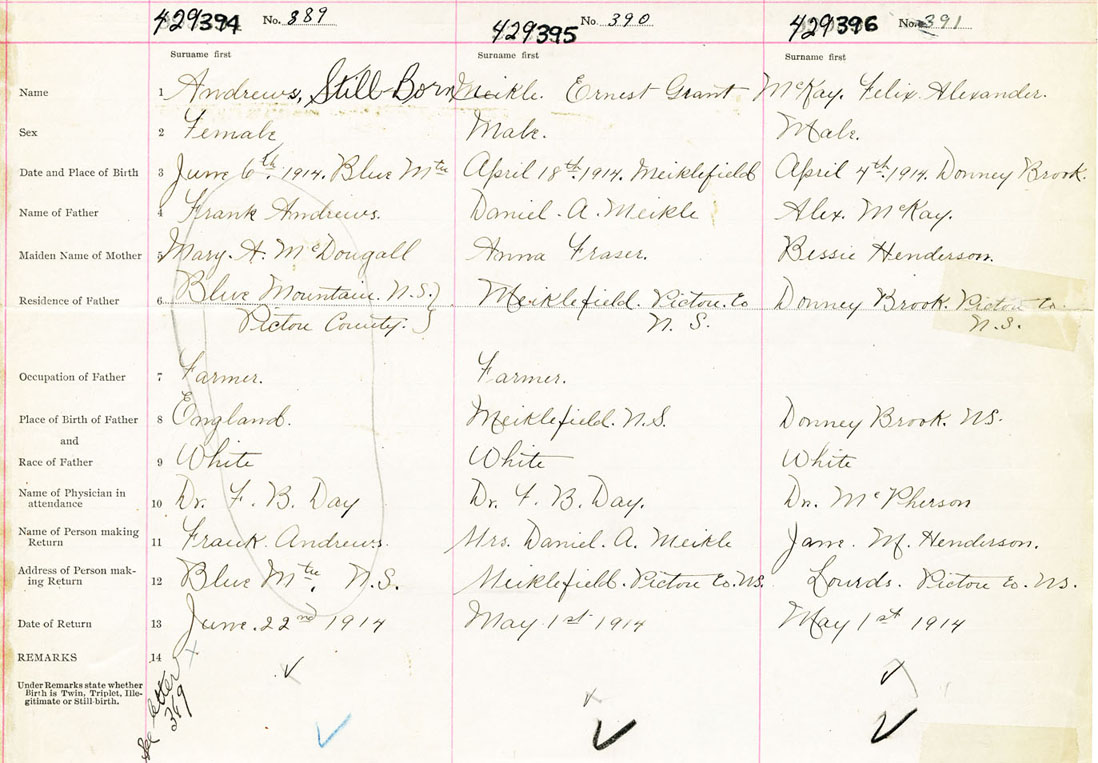 429394 No. 389 429395 No. 390 429396 No. 391
Surname first Surname first Surname first
Name 1 Andrews, Still-Born Meikle. Ernest Grant McKay. Felix. Alexander.
Sex 2 Female Male. Male.
Date and Place of Birth 3 June 6th. 1914. Blue Mtn April 18th. 1914. Meiklefield April 4th. 1914. Donney Brook.
Name of Father 4 Frank Andrews. Daniel. A. Meikle Alex. McKay.
Maiden Name of Mother 5 Mary. A. McDougall Anna Fraser. Bessie Henderson.
Residence of Father 6 Blue Mountain. N.S. } Meiklefield. Pictou. Co Donney Brook. Pictou Co.
Pictou County. N. S. N.S.
Occupation of Father 7 Farmer. Farmer.
Place of Birth of Father 8 England. Meiklefield. N.S. Donney Brook. N.S.
and
Race of Father 9 White White White
Name of Physician in
attendance 10 Dr. F. B. Day Dr. F. B. Day. Dr. McPherson
Name of Person making
Return 11 Frank. Andrews. Mrs. Daniel. A. Meikle Jane. M. Henderson.
Address of Person mak-
ing Return 12 Blue Mtn. N.S. Meiklefield. Pictou Co. N.S. Lourds. Pictou Co. N.S.
Date of Return 13 June. 22nd 1914 May 1st 1914 May 1st 1914
REMARKS 14
Under Remarks state whether
Birth is Twin, Triplet, Ille-
gitimate or Still-birth.
See letter
369